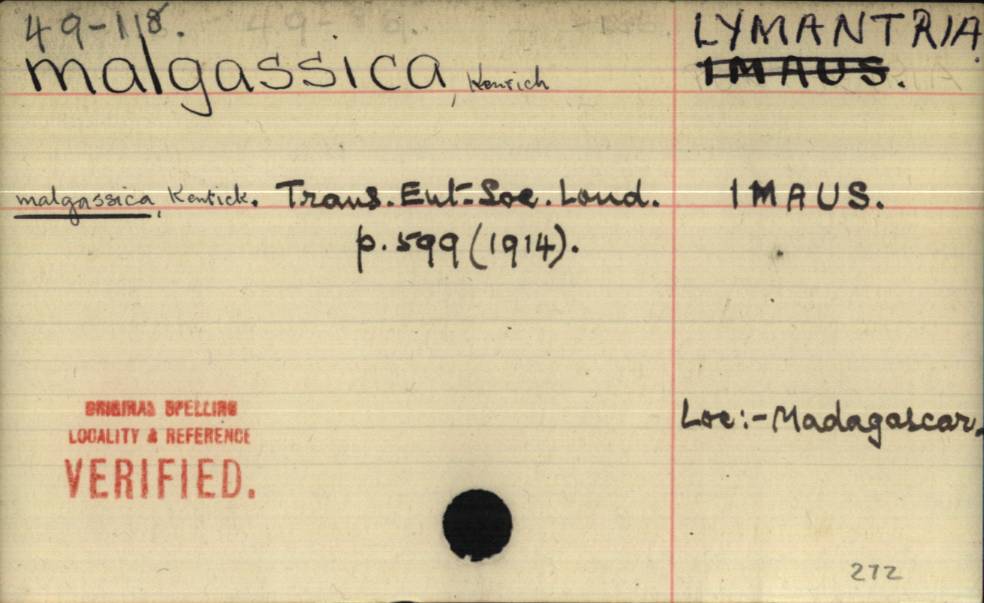 49-118.
LYMANTRIA.
malgassica, Kenrich
IMAUS.
malgassica, Kenrick. Trans. Ent. Soc. Lond. IMAUS.
p. 599 (1914).
ORIGINAL SPELLING
LOCALITY & REFERENCE
VERIFIED.
Loc:- Madagascar.
272